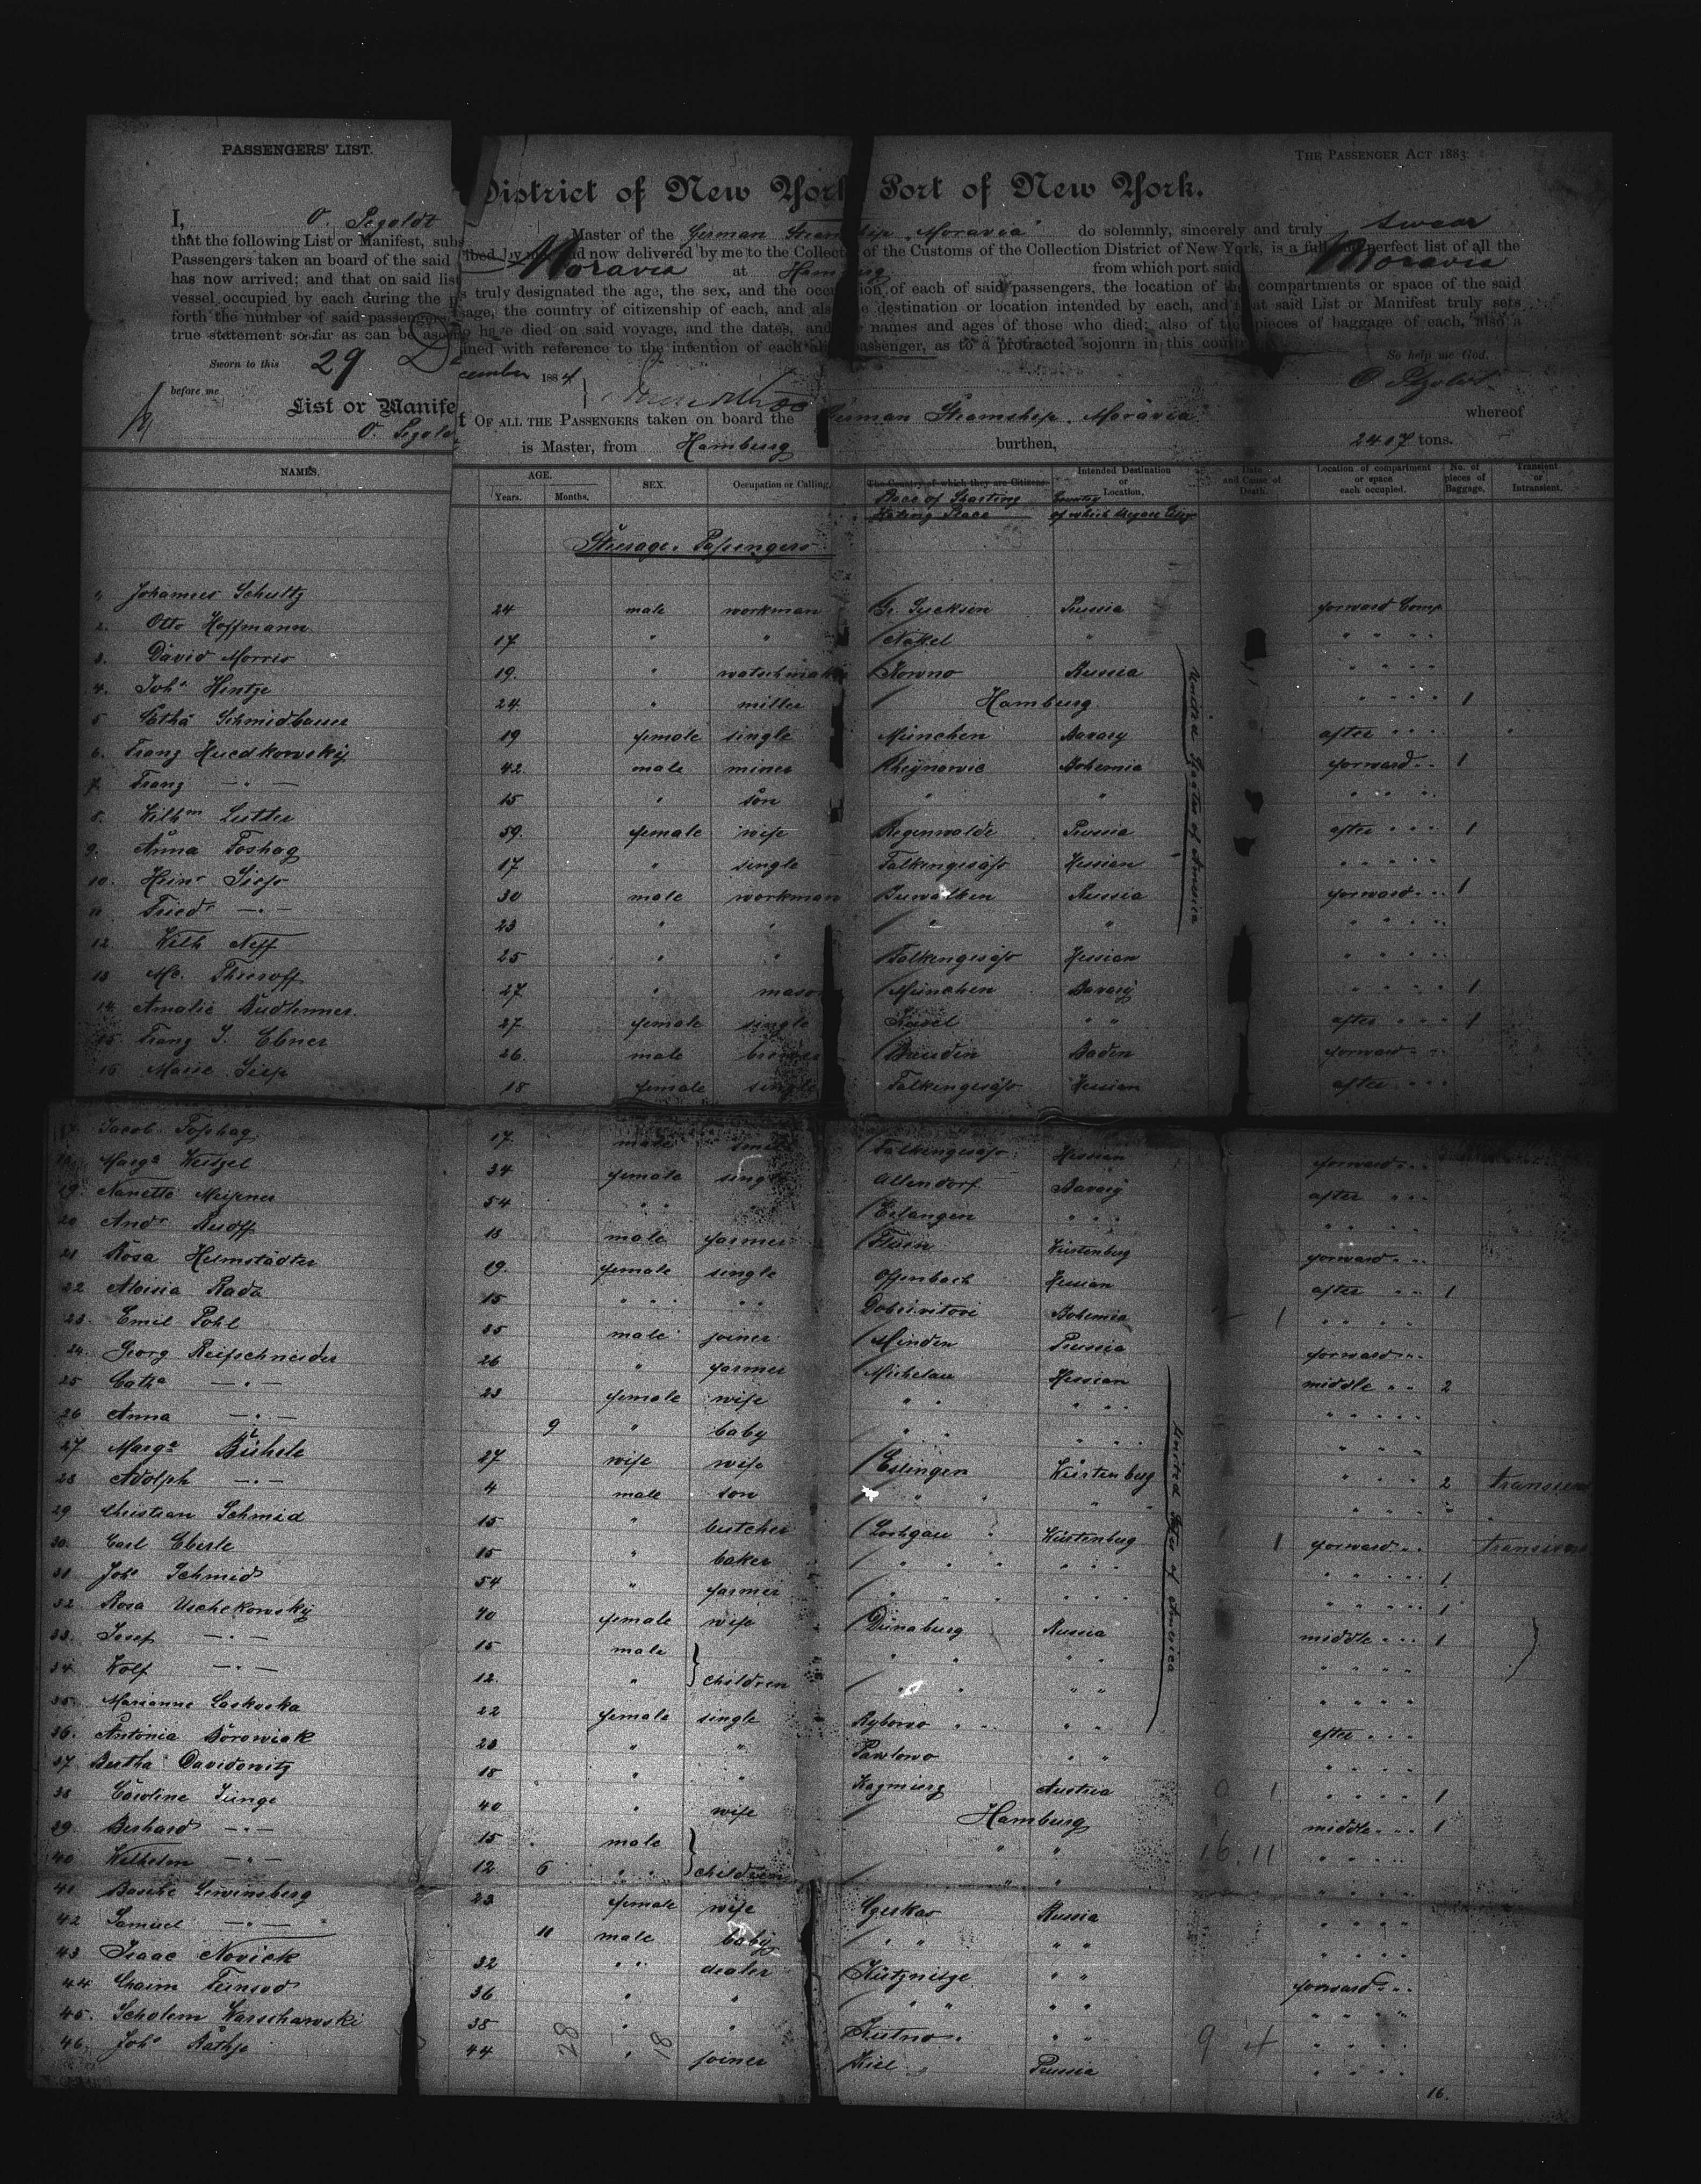 PASSENGERS' LIST.
THE PASSENGER ACT 1883.
District of New York Port of New York.
I, O. Pezoldt Master of the German Steamship "Moravia" do solemnly, sincerely and truly swear
that the following List or Manifest, subscribed by me and now delivered by me to the Collector of the Customs of the Collection District of New York, is a full and perfect list of all the
Passengers taken an board of the said Moravia at Hamburg from which port said Moravia
has now arrived; and that on said list is truly designated the age, the sex, and the occupation of each of said passengers, the location of the compartments or space of the said
vessel occupied by each during the passage, the country of citizenship of each, and also the destination or location intended by each, and that said List or Manifest truly sets
forth the number of said passengers who have died on said voyage, and the dates, and the names and ages of those who died; also of the pieces of baggage of each, also a
true statement so far as can be ascertained with reference to the intention of each alien passenger, as to a protracted sojourn in this country
So help me God.
Sworn to this 29 December 1884
before me
O Pezoldt
List or Manifest OF ALL THE PASSENGERS taken on board the German Steamship "Moravia" whereof
O. Pezoldt is Master, from Hamburg burthen, 2407 tons.
NAMES. AGE. Years. Months. SEX. Occupation or Calling. The Country of which they are Citizens. Intended Destination or Location. Date and Cause of Death. Location of compartment or space each occupied. No. of pieces of Baggage. Transient or Intransient.
Place of Starting Country
of which they are
Steerage Passengers
Johannes Schultz 24 male workman Prussia forward Comp
2. Otto Hoffmann 17 " " Nakel " " " " "
3. David Morris 19. " watschmaker Kowno Russia " " " "
4. Joh. Hintze 24 " miller Hamburg " " " " 1
5 Cath. Schmidbauer 19 female single München Bavary after " " "
6. Franz 42. male miner Bohemia forward " " 1
7. Franz — " — 15 " son " " " " " "
8. Wilhm 59. female wife Regenwalde Prussia after " " " 1
9. Anna Foshag 17 " single Falkengesäss Hessian " " " " "
10. Heinr 30 male workman Suwalken Russia forward " " " 1
11 Friedr — " — 23 " " " " " " " "
12. Wilh Neff 25 " " Falkengesäss Hessian " " " "
13 Thieroff 27 " mason München Bavary " " " " 1
14. Amalie 27 female single " " after " " " 1
15 Franz J. Ebner 26. male brewer Baden forward " "
16 Marie 18 female single Falkengesäss Hessian after " " "
17 Jacob Foshag 17. male Falkengesäss Hessian forward " " "
18 Marga Weitzel 34 female single Allendorf Bavary after " " "
19. Nanette Meissner 54 " " Erlangen " " " " " " "
20 Andr Ruoff 18 male farmer Würtenberg forward " " "
21 Rosa Helmstädter 19. female single Offenbach Hessian after " " 1
22 Aloisia Rada 15 " " " " Bohemia " " " "
23. Emil Pohl 35 male joiner Minden Prussia forward " " "
24. Georg Reifschneider 26 " farmer Michelau Hessian middle " " 2
25 Catha — " — 23 female wife " " " " " " " " " "
26 Anna — " — 9 " baby " " " " " " " "
27. Marga Bühele 27 wife wife Eslingen Würtenberg " " " " 2 transient
28 Adolph — " — 4 male son " " " " " " " " "
29 Christian Schmid 15 " butcher Würtenberg 1 forward " " transient
30. Carl Eberle 15 " baker " " " " " " " " " " " 1
31 Joh. Schmid 54 " farmer " " " " " " " " " " 1
32 Rosa Uschekowsky 40 female wife Dünaburg Russia middle " " " 1
33. Josef — " — 15 male " " " " " " " "
34 Wolf — " — 12. " children " " " " " " "
35. Marianne 22 female single " " " " after " " "
36. Antonia Borowiak 23 " " Pawlowo " " " " " "
37 Bertha Davidowitz 18 " " Austria 0 1 " " " " 1
38 Caroline Junge 40 " wife Hamburg middle " " " 1
39 Berhard — " — 15 male " " 16 . 11 " " " "
40 Wilhelm — " — 12 6 " " children " " " " " "
41 Basche Lewinsberg 23 female wife Russia " " " "
42 Samuel — " — 11 male baby " " " " " " " "
43 Isaac Novick 32 " " dealer " " forward " " "
44 Chaim 36 " " " " " " " " " "
45. Scholem Warschawski 38 " " Kutno " " 9 4 " " " "
46. Joh. Räthje 44 " joiner Kiel Prussia " " " "
28 18
16.
United States of America
United States of America